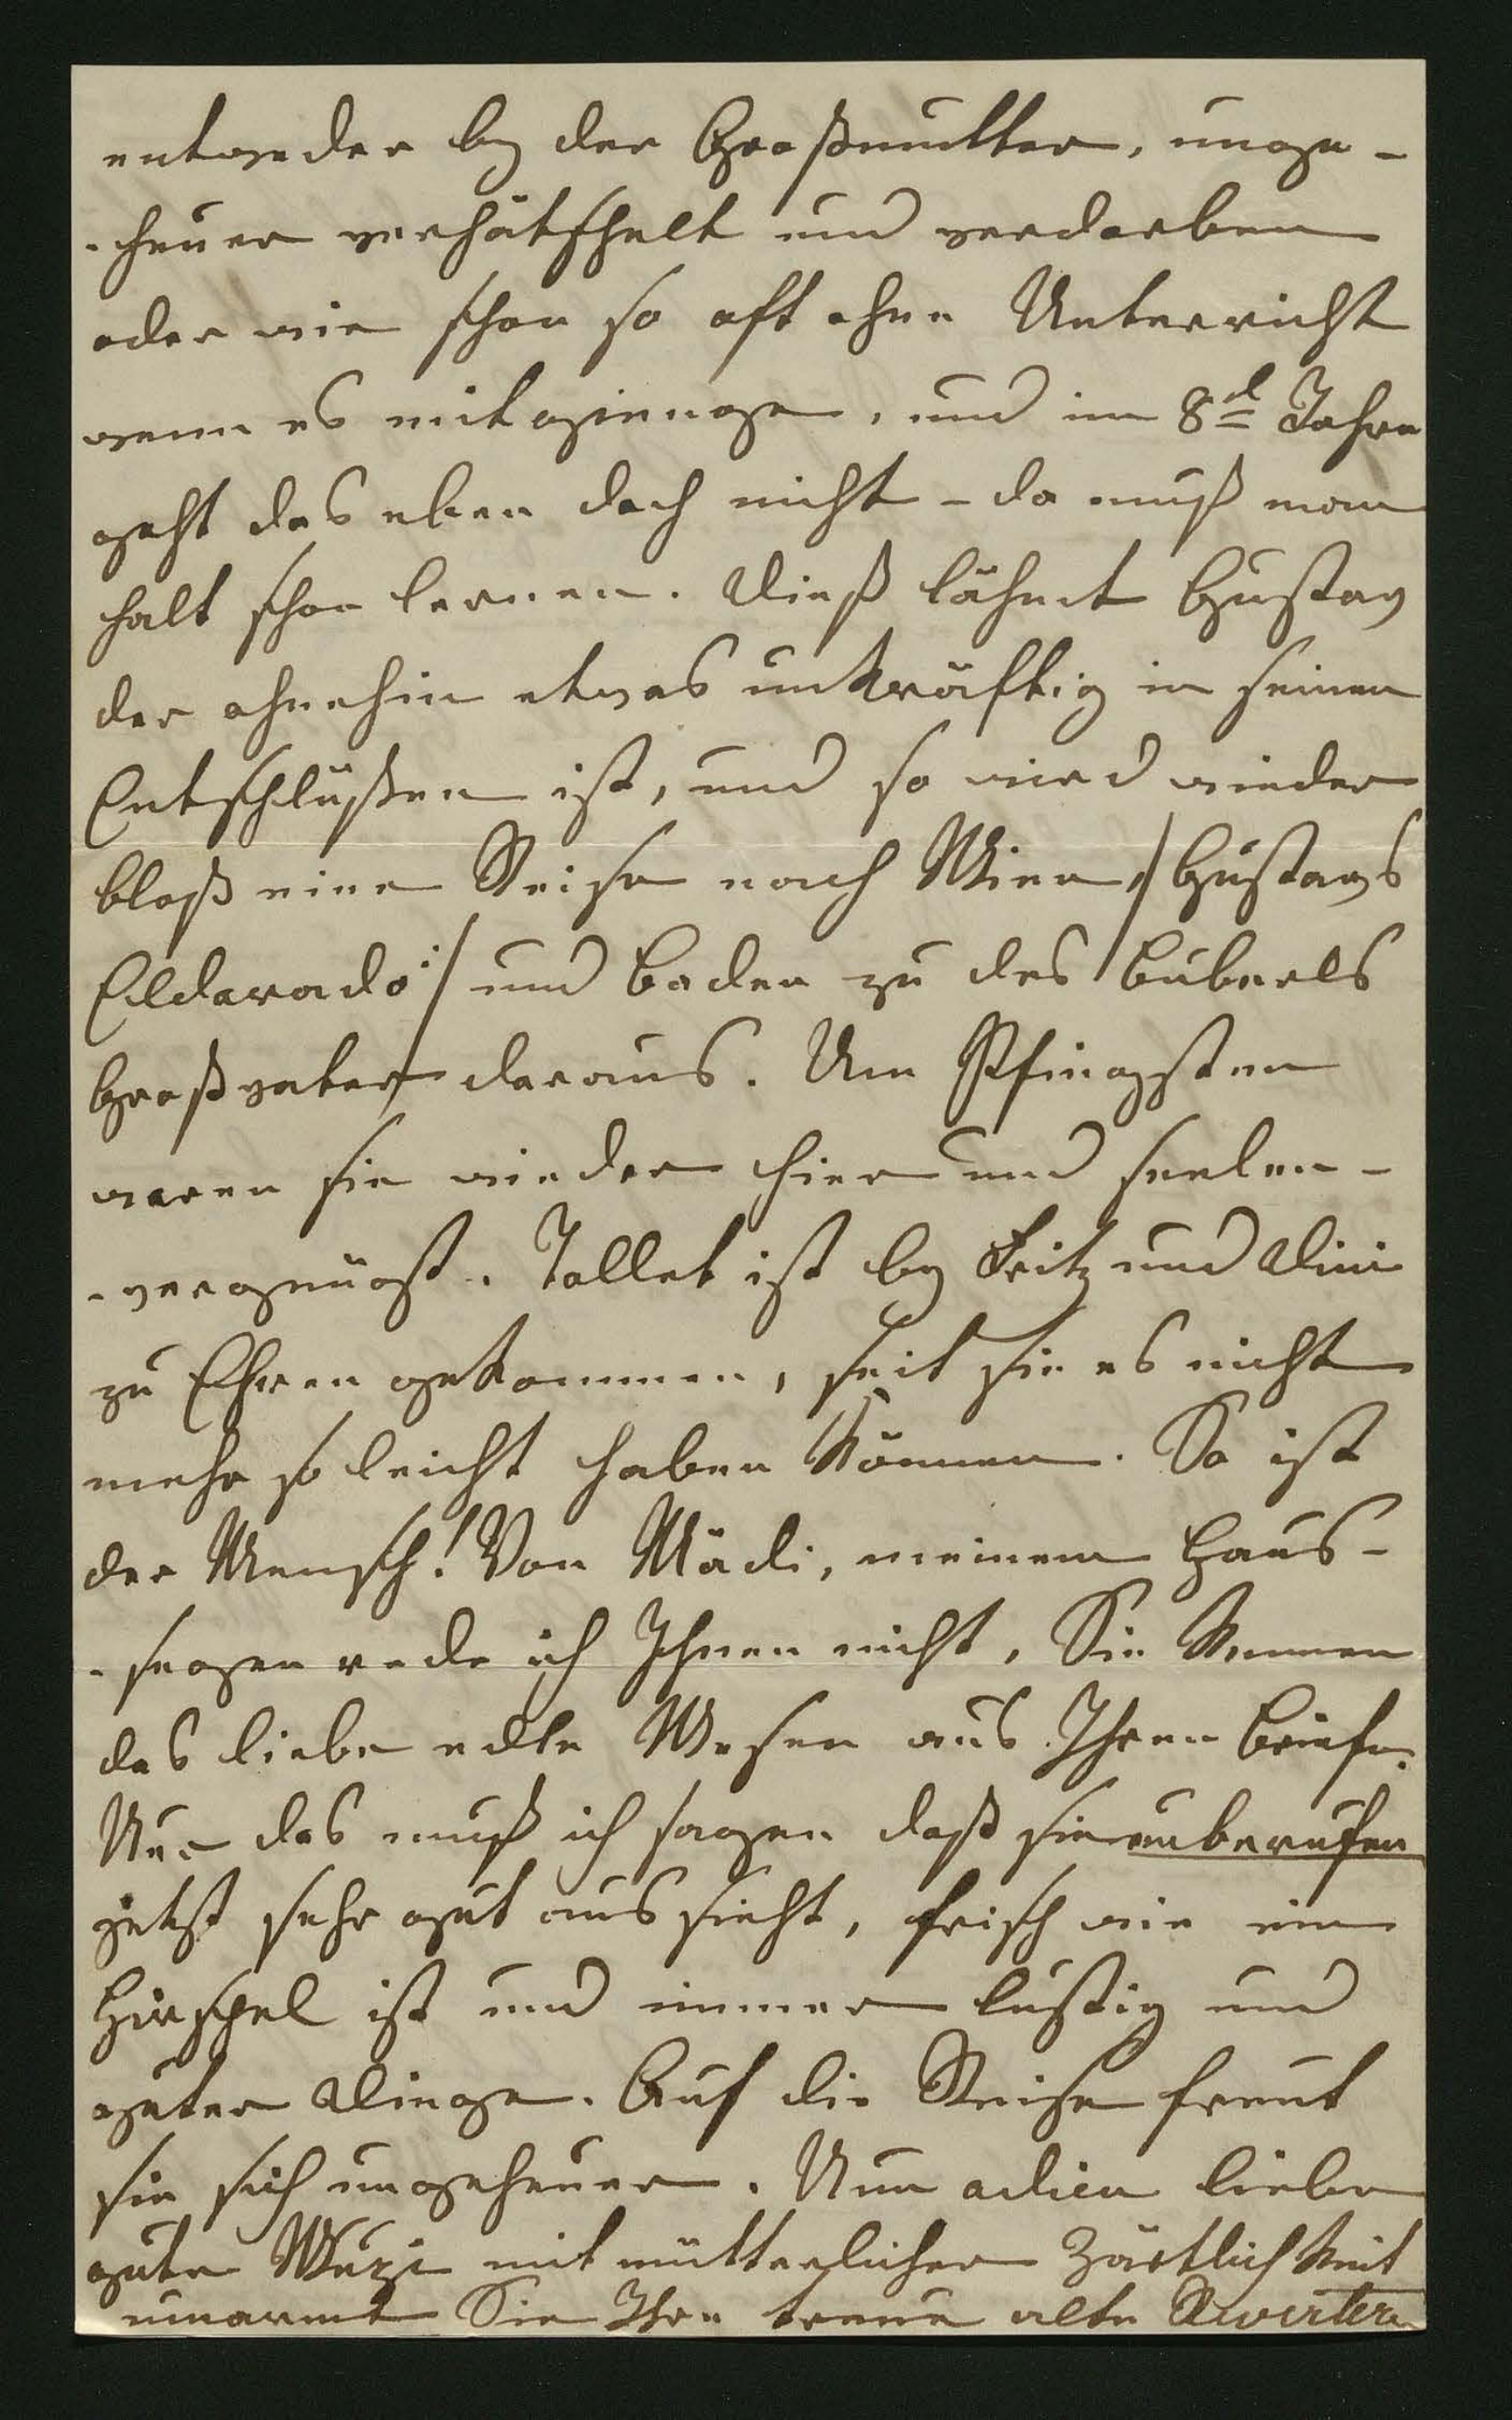 entweder by der Großmutter, unge-
-heuer verhätschelt und verdorben
oder wie schon so oft ohne Unterricht
wenn es mitgienge, und im 8d Jahre
geht das eben doch nicht – da muß man
halt schon lernen. Dieß lähmt Gustav
der ohnehin etwas unkräftig in seinen
Entschlüßen ist, und so wird wieder
bloß eine Reise nach Wien /: Gustavs
Eldorado :/ und Baden zu des Buberls
Großvater daraus. Um Pfingsten
waren sie wieder hier und seelen-
-vergnügt. Tollet ist by Fritz und Dini
zu Ehren gekommen, seit sie es nicht
mehr so leicht haben können. So ist
der Mensch! Von Mädi, meinem Haus-
-segen rede ich Ihnen nicht, Sie kennen
das liebe edle Wesen aus Ihren Briefen.
Nur das muß ich sagen daß sie unberufen
jetzt sehr gut aussieht, frisch wie ein
Hirschel ist und immer lustig und
guter Dinge. Auf die Reise freut
sie sich ungeheuer. Nun adieu liebe
gute mit mütterlicher Zärtlichkeit
umarmt Sie Ihre treue alte